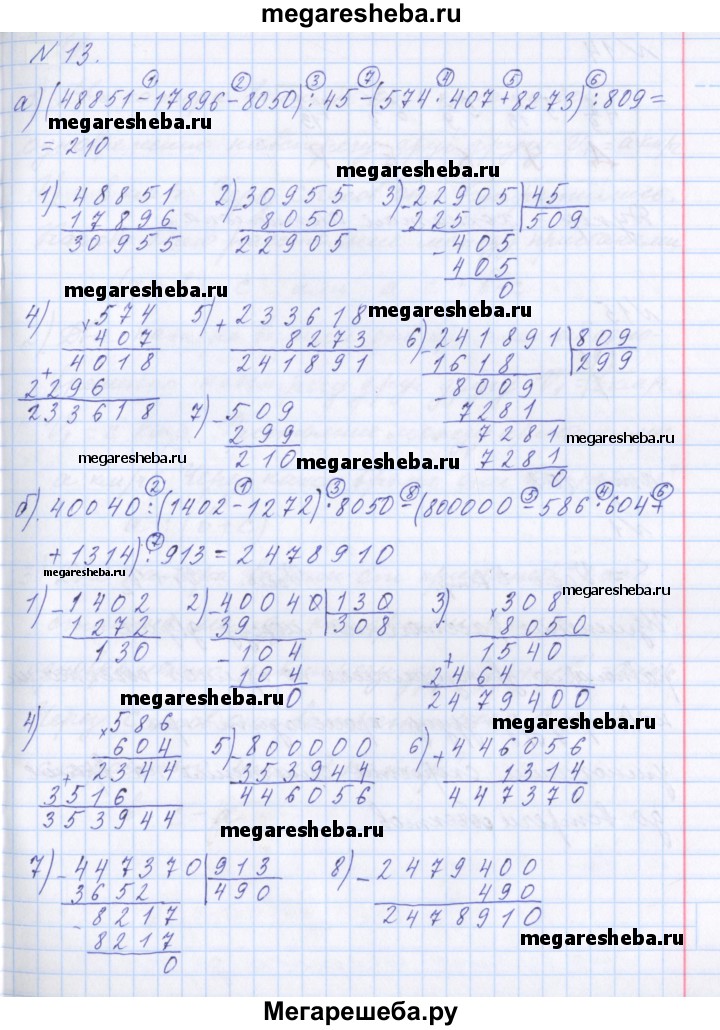 megaresheba.ru
N 13.
а) (48851-17896-8050):45-(574·407+8273):809=
① ② ③ ⑦ ④ ⑤ ⑥
megaresheba.ru megaresheba.ru
= 210
megaresheba.ru
1) - 48851 2) - 30955 3) - 22905 | 45
17896 8050 225 509
30955 22905 - 405
405
0
megaresheba.ru megaresheba.ru
4) × 574 5) + 233618 6) - 241891 | 809
407 8273 1618 299
+ 4018 241891 - 8009
2296 7281
233618 7) - 509 - 7281
299 7281
210 0
megaresheba.ru megaresheba.ru megaresheba.ru
② ① ③ ⑧ ③ ④ ⑥
б). 40040:(1402-1272)·8050-(800000-586·604
megaresheba.ru
+1314):913=2478910
⑦
megaresheba.ru megaresheba.ru
1) - 1402 2) - 40040 | 130 3) × 308
1272 39 308 8050
130 - 104 + 1540
104 2464
0 2479400
megaresheba.ru megaresheba.ru
4) × 586 5) - 800000 6) + 446056
604 353944 1314
+ 2344 446056 447370
3516
353944
megaresheba.ru
7) - 447370 | 913 8) - 2479400
3652 490 490
- 8217 2478910
8217
0
megaresheba.ru
Мегарешеба.ру